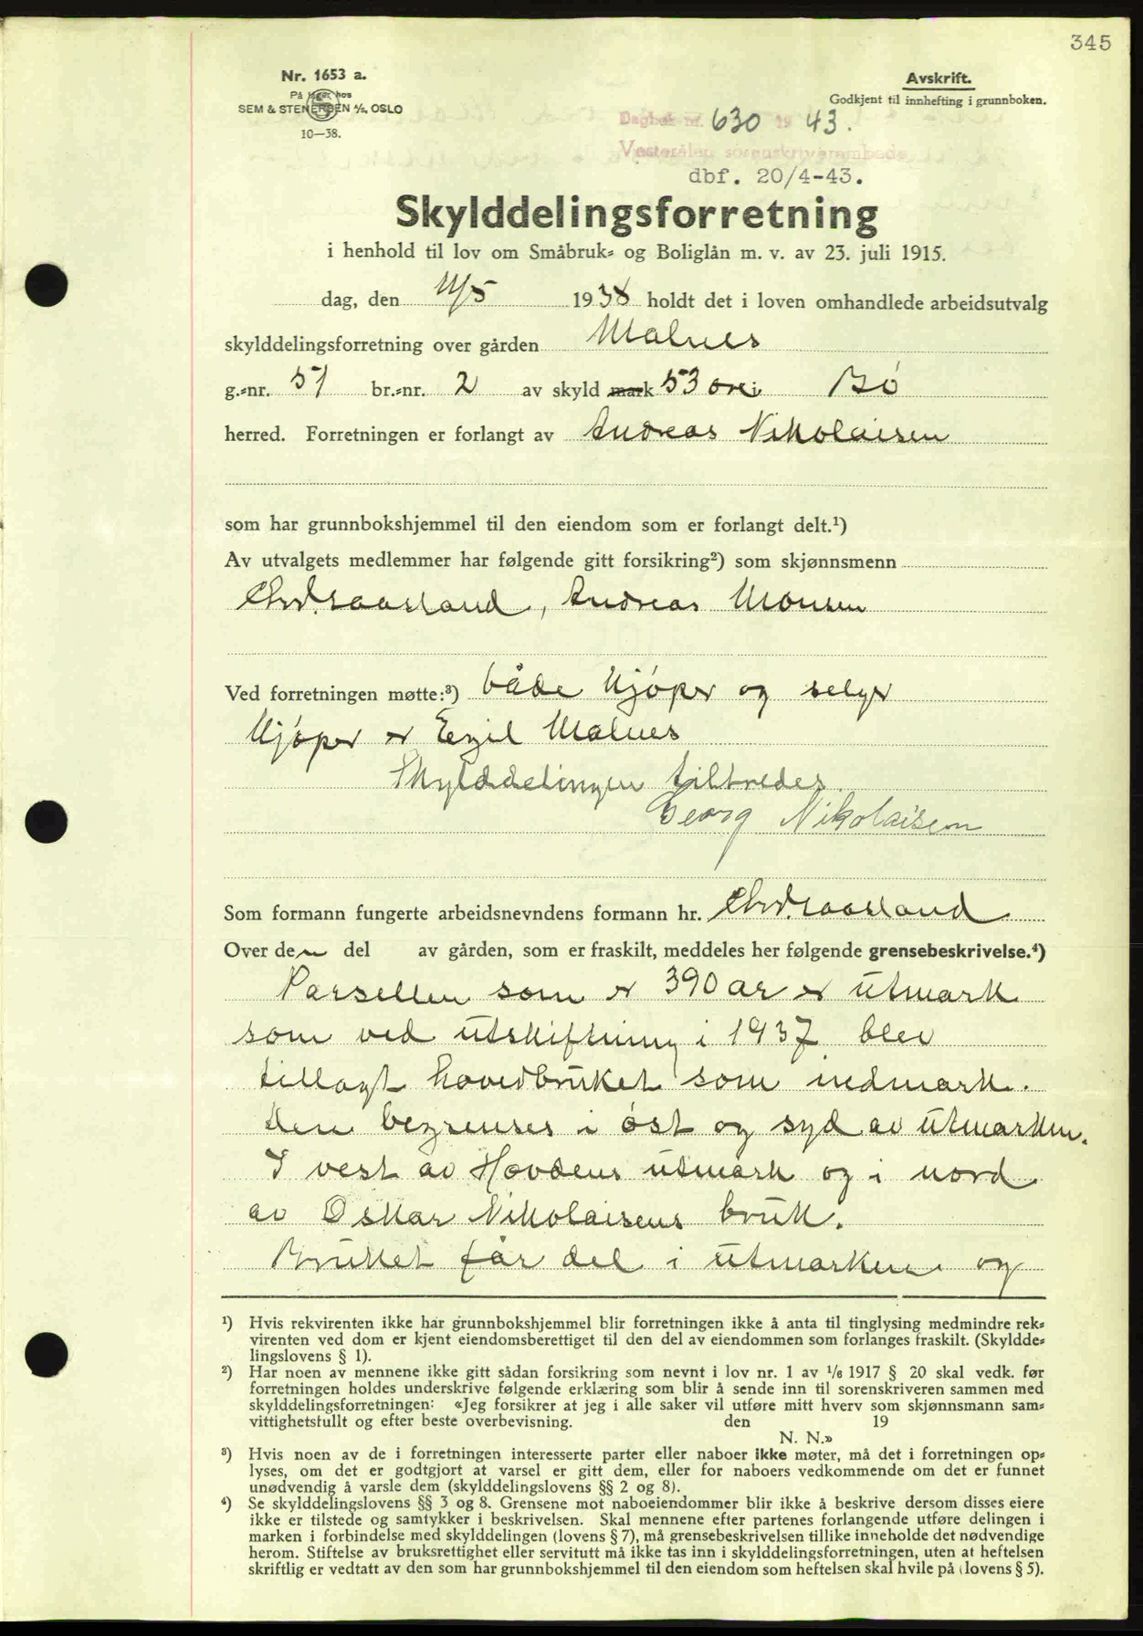 345
Nr. 1653 a.
På lager hos
SEM & STENERSEN A/S, OSLO
10—38.
Avskrift.
Godkjent til innhefting i grunnboken.
Dagbok nr. 630 19 43.
Vesterålen sorenskriverembede
dbf. 20/4-43.
Skylddelingsforretning
i henhold til lov om Småbruk- og Boliglån m. v. av 23. juli 1915.
dag, den 11/5 1938 holdt det i loven omhandlede arbeidsutvalg
skylddelingsforretning over gården Malnes
g.-nr. 51 br.-nr. 2 av skyld mark 53 øre i Bø
herred. Forretningen er forlangt av Andreas Nikolaisen
som har grunnbokshjemmel til den eiendom som er forlangt delt.¹)
Av utvalgets medlemmer har følgende gitt forsikring²) som skjønnsmenn
Chr. Aarland, Andreas Monsen
Ved forretningen møtte:³) både kjøper og selger
Kjøper er Egil Malnes
Skylddelingen tiltredes
Georg Nikolaisen
Som formann fungerte arbeidsnevndens formann hr. Chr. Aarland
Over den del av gården, som er fraskilt, meddeles her følgende grensebeskrivelse.⁴)
Parsellen som er 390 ar er utmark
som ved utskiftning i 1937 blev
tillagt hovedbruket som indmark.
den begrenses i øst og syd av utmarken.
I vest av Hovdens utmark og i nord
av Oskar Nikolaisens bruk.
Bruket får del i utmarken og
¹) Hvis rekvirenten ikke har grunnbokshjemmel blir forretningen ikke å anta til tinglysing medmindre rek-
virenten ved dom er kjent eiendomsberettiget til den del av eiendommen som forlanges fraskilt. (Skyldde-
lingslovens § 1).
²) Har noen av mennene ikke gitt sådan forsikring som nevnt i lov nr. 1 av 1/6 1917 § 20 skal vedk. før
forretningen holdes underskrive følgende erklæring som blir å sende inn til sorenskriveren sammen med
skylddelingsforretningen: «Jeg forsikrer at jeg i alle saker vil utføre mitt hverv som skjønnsmann sam-
vittighetsfullt og efter beste overbevisning. den 19
N. N.»
³) Hvis noen av de i forretningen interesserte parter eller naboer ikke møter, må det i forretningen op-
lyses, om det er godtgjort at varsel er gitt dem, eller for naboers vedkommende om det er funnet
unødvendig å varsle dem (skylddelingslovens §§ 2 og 8).
⁴) Se skylddelingslovens §§ 3 og 8. Grensene mot naboeiendommer blir ikke å beskrive dersom disses eiere
ikke er tilstede og samtykker i beskrivelsen. Skal mennene efter partenes forlangende utføre delingen i
marken i forbindelse med skylddelingen (lovens § 7), må grensebeskrivelsen tillike inneholde det nødvendige
herom. Stiftelse av bruksrettighet eller servitutt må ikke tas inn i skylddelingsforretningen, uten at heftelsen
skriftlig er vedtatt av den som har grunnbokshjemmel til den eiendom som heftelsen skal hvile på (lovens § 5).